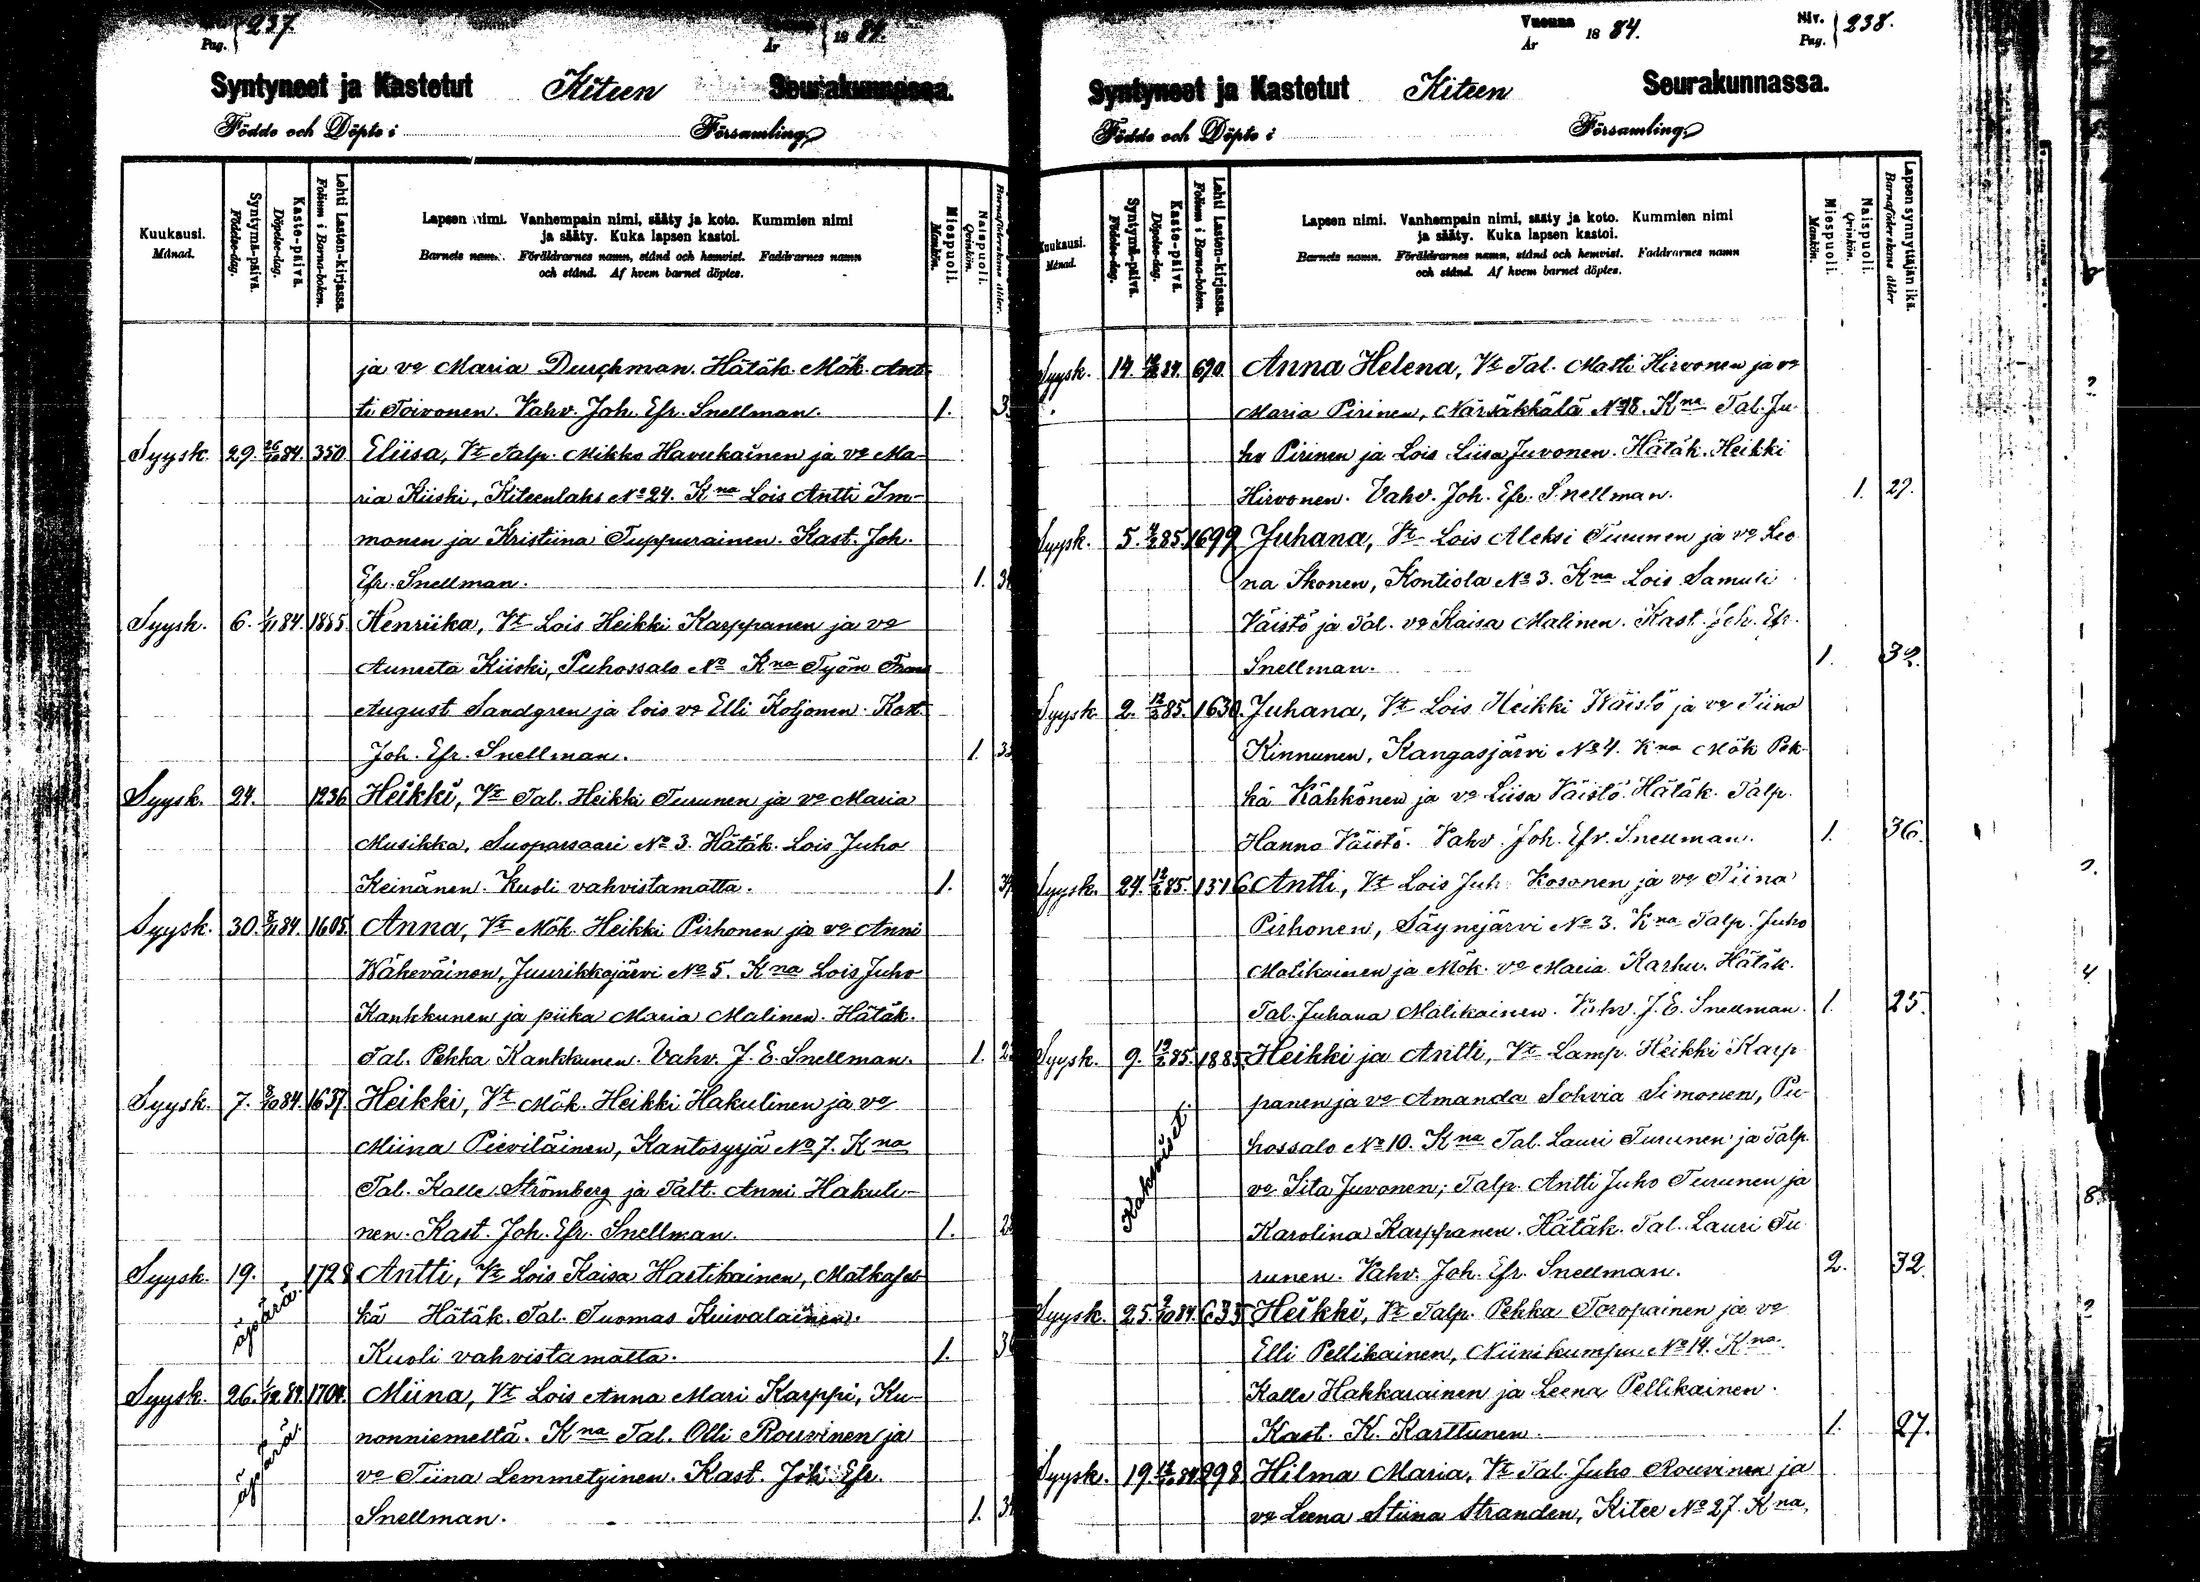 Pag. 237.
År 1884.
Syntyneet ja Kastetut Kiteen Seurakunnassa.
Födde och Döpte i Församling
Kuukausi. Månad.
Syntymä-päivä. Födelse-dag.
Kaste-päivä. Döpelse-dag.
Lehti Lasten-kirjassa. Folium i Barna-boken.
Lapsen nimi. Vanhempain nimi, sääty ja koto. Kummien nimi
ja sääty. Kuka lapsen kastoi.
Barnets namn. Föräldrarnes namn, stånd och hemvist. Faddrarnes namn
och stånd. Af hvem barnet döptes.
Miespuoli. Mankön.
Naispuoli. Qvinkön.
Barnaföderskans ålder.
ja vo Maria Durchman. Hätäk. Mök. Ant-
ti Toivonen. Vahv. Joh. Efr. Snellman. 1.
Syysk. 29. 26/10 84. 350 Eliisa, Vt Talp. Mikko Havukainen ja vo Ma-
ria Kiiski, Kiteenlaks No 24. Kna Lois Antti Im-
monen ja Kristiina Tuppurainen. Kast. Joh.
Efr. Snellman. 1.
Syysk. 6. 1/11 84. 1885 Henriika, Vt Lois Heikki Karppanen ja vo
Aunreta Kiiski, Puhossalo No Kna Työm Frans
August Sandgren ja lois vo Elli Koljonen. Kast.
Joh. Efr. Snellman. 1.
Syysk. 24. 1236 Heikki, Vt Tal. Heikki Turunen ja vo Maria
Musikka, Suoparsaari No 3. Hätäk. Lois Juho
Keinänen. Kuoli vahvistamatta. 1.
Syysk. 30. 8/11 84. 1605. Anna, Vt Mök. Heikki Pirhonen ja vo Anni
Wäheväinen, Juurikkajärvi No 5. Kna Lois Juho
Kankkunen ja piika Maria Malinen. Hätäk.
Tal. Pekka Kankkunen. Vahv. J. E. Snellman. 1.
Syysk. 7. 8/10 84. 1637. Heikki, Vt Mök. Heikki Hakulinen ja vo
Miina Pieviläinen, Kantosyrjä No 7. Kna
Tal. Kalle Strömberg ja Talt. Anni Hakuli-
nen. Kast. Joh. Efr. Snellman. 1.
Syysk. 19. 1728 Antti, Vt Lois Kaisa Hartikainen, Matkasel-
äpärä. kä Hätäk. Tal. Tuomas Kuivalainen.
Kuoli vahvistamatta. 1.
Syysk. 26. 1/12 84. 1704. Miina, Vt Lois Anna Mari Karppi, Ku-
äpärä. nonniemeltä. Kna Tal. Olli Rouvinen ja
vo Tiina Lemmetyinen. Kast. Joh. Efr.
Snellman. 1.
Vuonna År 1884.
Niv. Pag. 238.
Syntyneet ja Kastetut Kiteen Seurakunnassa.
Födde och Döpte i Församling
Kuukausi. Månad.
Syntymä-päivä. Födelse-dag.
Kaste-päivä. Döpelse-dag.
Lehti Lasten-kirjassa. Folium i Barna-boken.
Lapsen nimi. Vanhempain nimi, sääty ja koto. Kummien nimi
ja sääty. Kuka lapsen kastoi.
Barnets namn. Föräldrarnes namn, stånd och hemvist. Faddrarnes namn
och stånd. Af hvem barnet döptes.
Miespuoli. Mankön.
Naispuoli. Qvinkön.
Lapsen synnyttäjän ikä. Barnaföderskans ålder
Syysk. 14. 84. 690. Anna Helena, Vt Tal. Matti Hirvonen ja vo
Maria Pirinen, Närsäkkälä No 18. Kna Tal. Ju-
ho Pirinen ja Lois Liisa Juvonen. Hätäk. Heikki
Hirvonen. Vahv. Joh. Efr. Snellman. 1. 27.
Syysk. 5. 85. 1699 Juhana, Vt Lois Aleksi Turunen ja vo Leo
na Ikonen, Kontiola No 3. Kna Lois Samuli
Väistö ja Tal. vo Kaisa Malinen. Kast. Joh. Efr.
Snellman. 1. 32.
Syysk. 2. 12/2 85. 1630. Juhana, Vt Lois Heikki Wäistö ja vo Tiina
Kinnunen, Kangasjärvi No 4. Kna Mök Pek-
ka Kähkönen ja vo Liisa Väistö. Hätäk. Talp.
Hanno Väistö. Vahv. Joh. Efr. Snellman. 1. 36.
Syysk. 24. 12/2 85. 1316 Antti, Vt Lois Juh. Kosonen ja vo Tiina
Pirhonen, Säynejärvi No 3. Kna Talp. Juho
Malikainen ja Mök. vo Maria Karhu. Hätäk.
Tal. Juhana Malikainen. Vahv. J. E. Snellman. 1. 25.
Syysk. 9. 85. 1885. Heikki ja Antti, Vt Lamp. Heikki Karp-
panen ja vo Amanda Sohvia Simonen, Pu-
Kaksoiset. hossalo No 10. Kna Tal. Lauri Turunen ja Talp.
vo Iita Juvonen; Talp. Antti Juho Turunen ja
Karolina Karppanen. Hätäk. Tal. Lauri Tu-
runen. Vahv. Joh. Efr. Snellman. 2. 32.
Syysk. 25. 84. 635 Heikki, Vt Talp. Pekka Toropainen ja vo
Elli Pellikainen, Niinikumpu No 14. Kna
Kalle Hakkarainen ja Leena Pellikainen.
Kast. K. Karttunen. 1. 27.
Syysk. 19. 84. 998 Hilma Maria, Vt Tal. Juho Rouvinen ja
vo Leena Stiina Stranden, Kitee No 27. Kna,